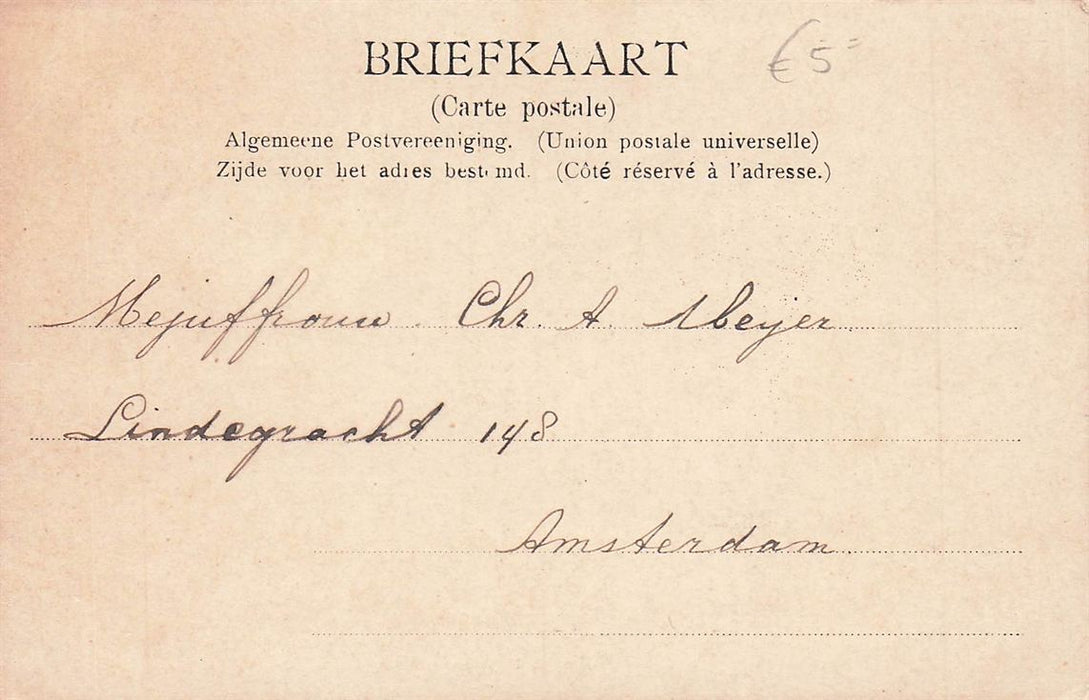 BRIEFKAART
€ 5=
(Carte postale)
Algemeene Postvereeniging. (Union postale universelle)
Zijde voor het adres bestemd. (Côté réservé à l'adresse.)
Mejuffrouw. Chr. A. Meijer.
Lindegracht 148
Amsterdam.